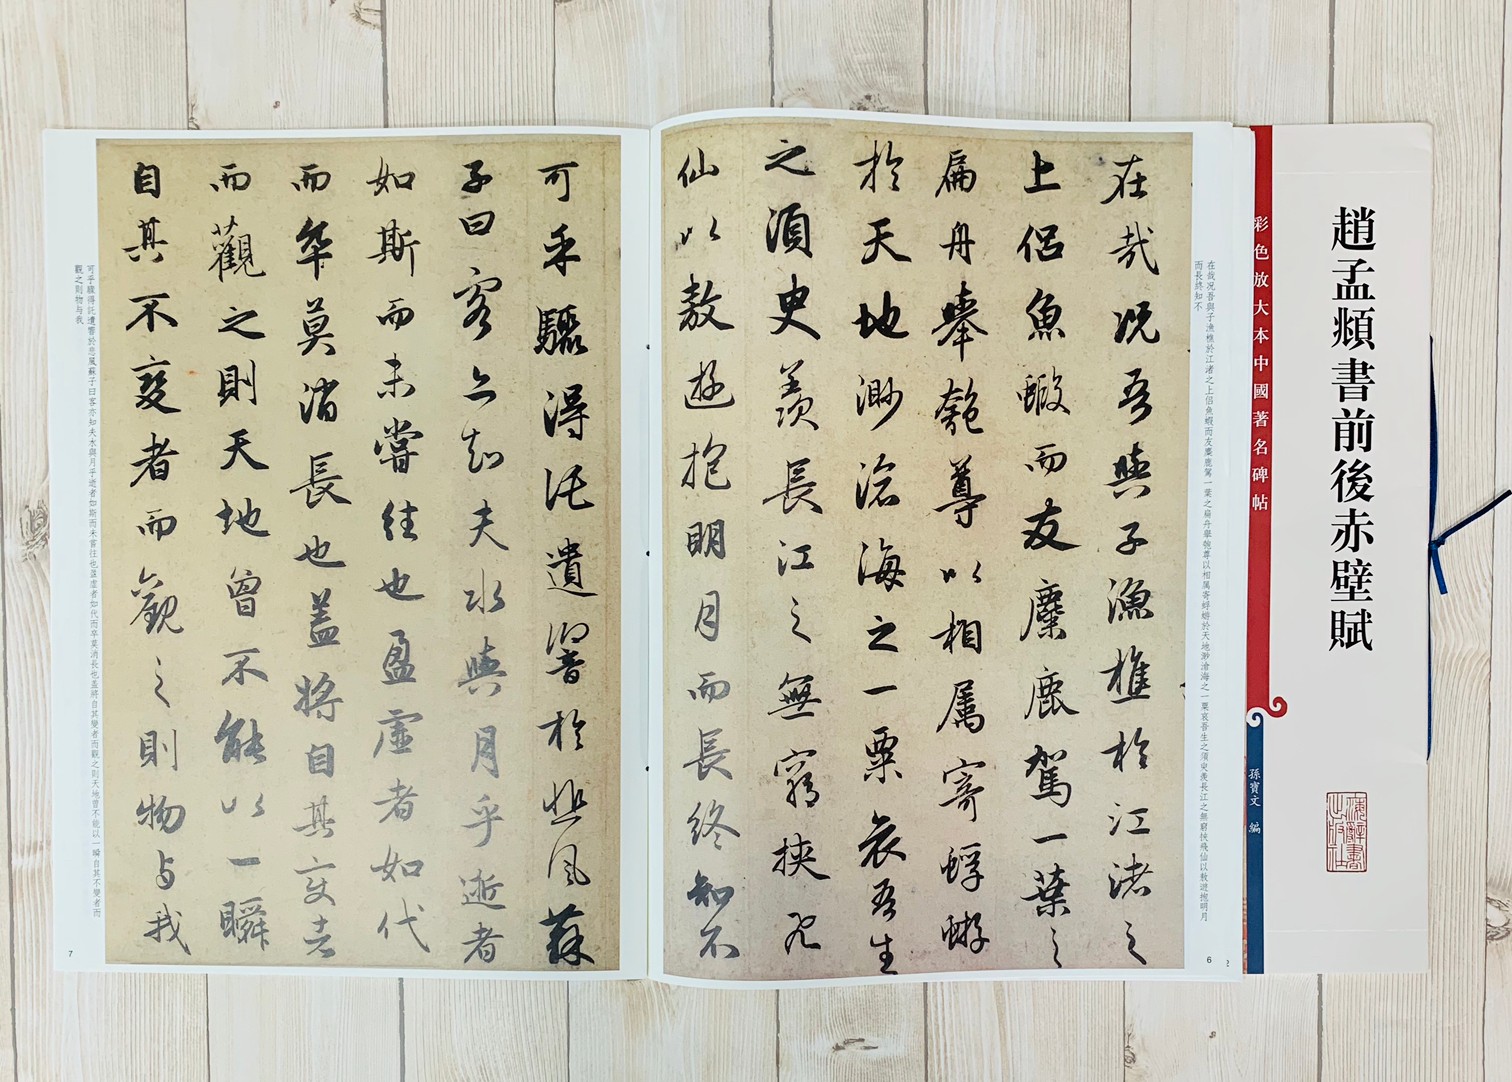 趙孟頫書前後赤壁賦
海辭書出版社
彩色放大本中國著名碑帖
孫寶文 編
在哉况吾與子漁樵於江渚之上侶魚蝦而友麋鹿駕一葉之扁舟舉匏尊以相属寄蜉蝣於天地渺滄海之一粟哀吾生之須臾羨長江之無窮挾飛仙以敖遊抱明月
而長終知不
在哉况吾與子漁樵於江渚之
上侶魚蝦而友麋鹿駕一葉之
扁舟舉匏尊以相属寄蜉蝣
於天地渺滄海之一粟哀吾生
之須臾羨長江之無窮挾飛
仙以敖遊抱明月而長終知不
6
2
可乎驟得託遺響於悲風蘇
子曰客亦知夫水與月乎逝者
如斯而未嘗往也盈虛者如代
而卒莫消長也蓋將自其變者
而觀之則天地曾不能以一瞬
自其不變者而觀之則物与我
可乎驟得託遺響於悲風蘇子曰客亦知夫水與月乎逝者如斯而未嘗往也盈虛者如代而卒莫消長也蓋將自其變者而觀之則天地曾不能以一瞬自其不變者而
觀之則物与我
7